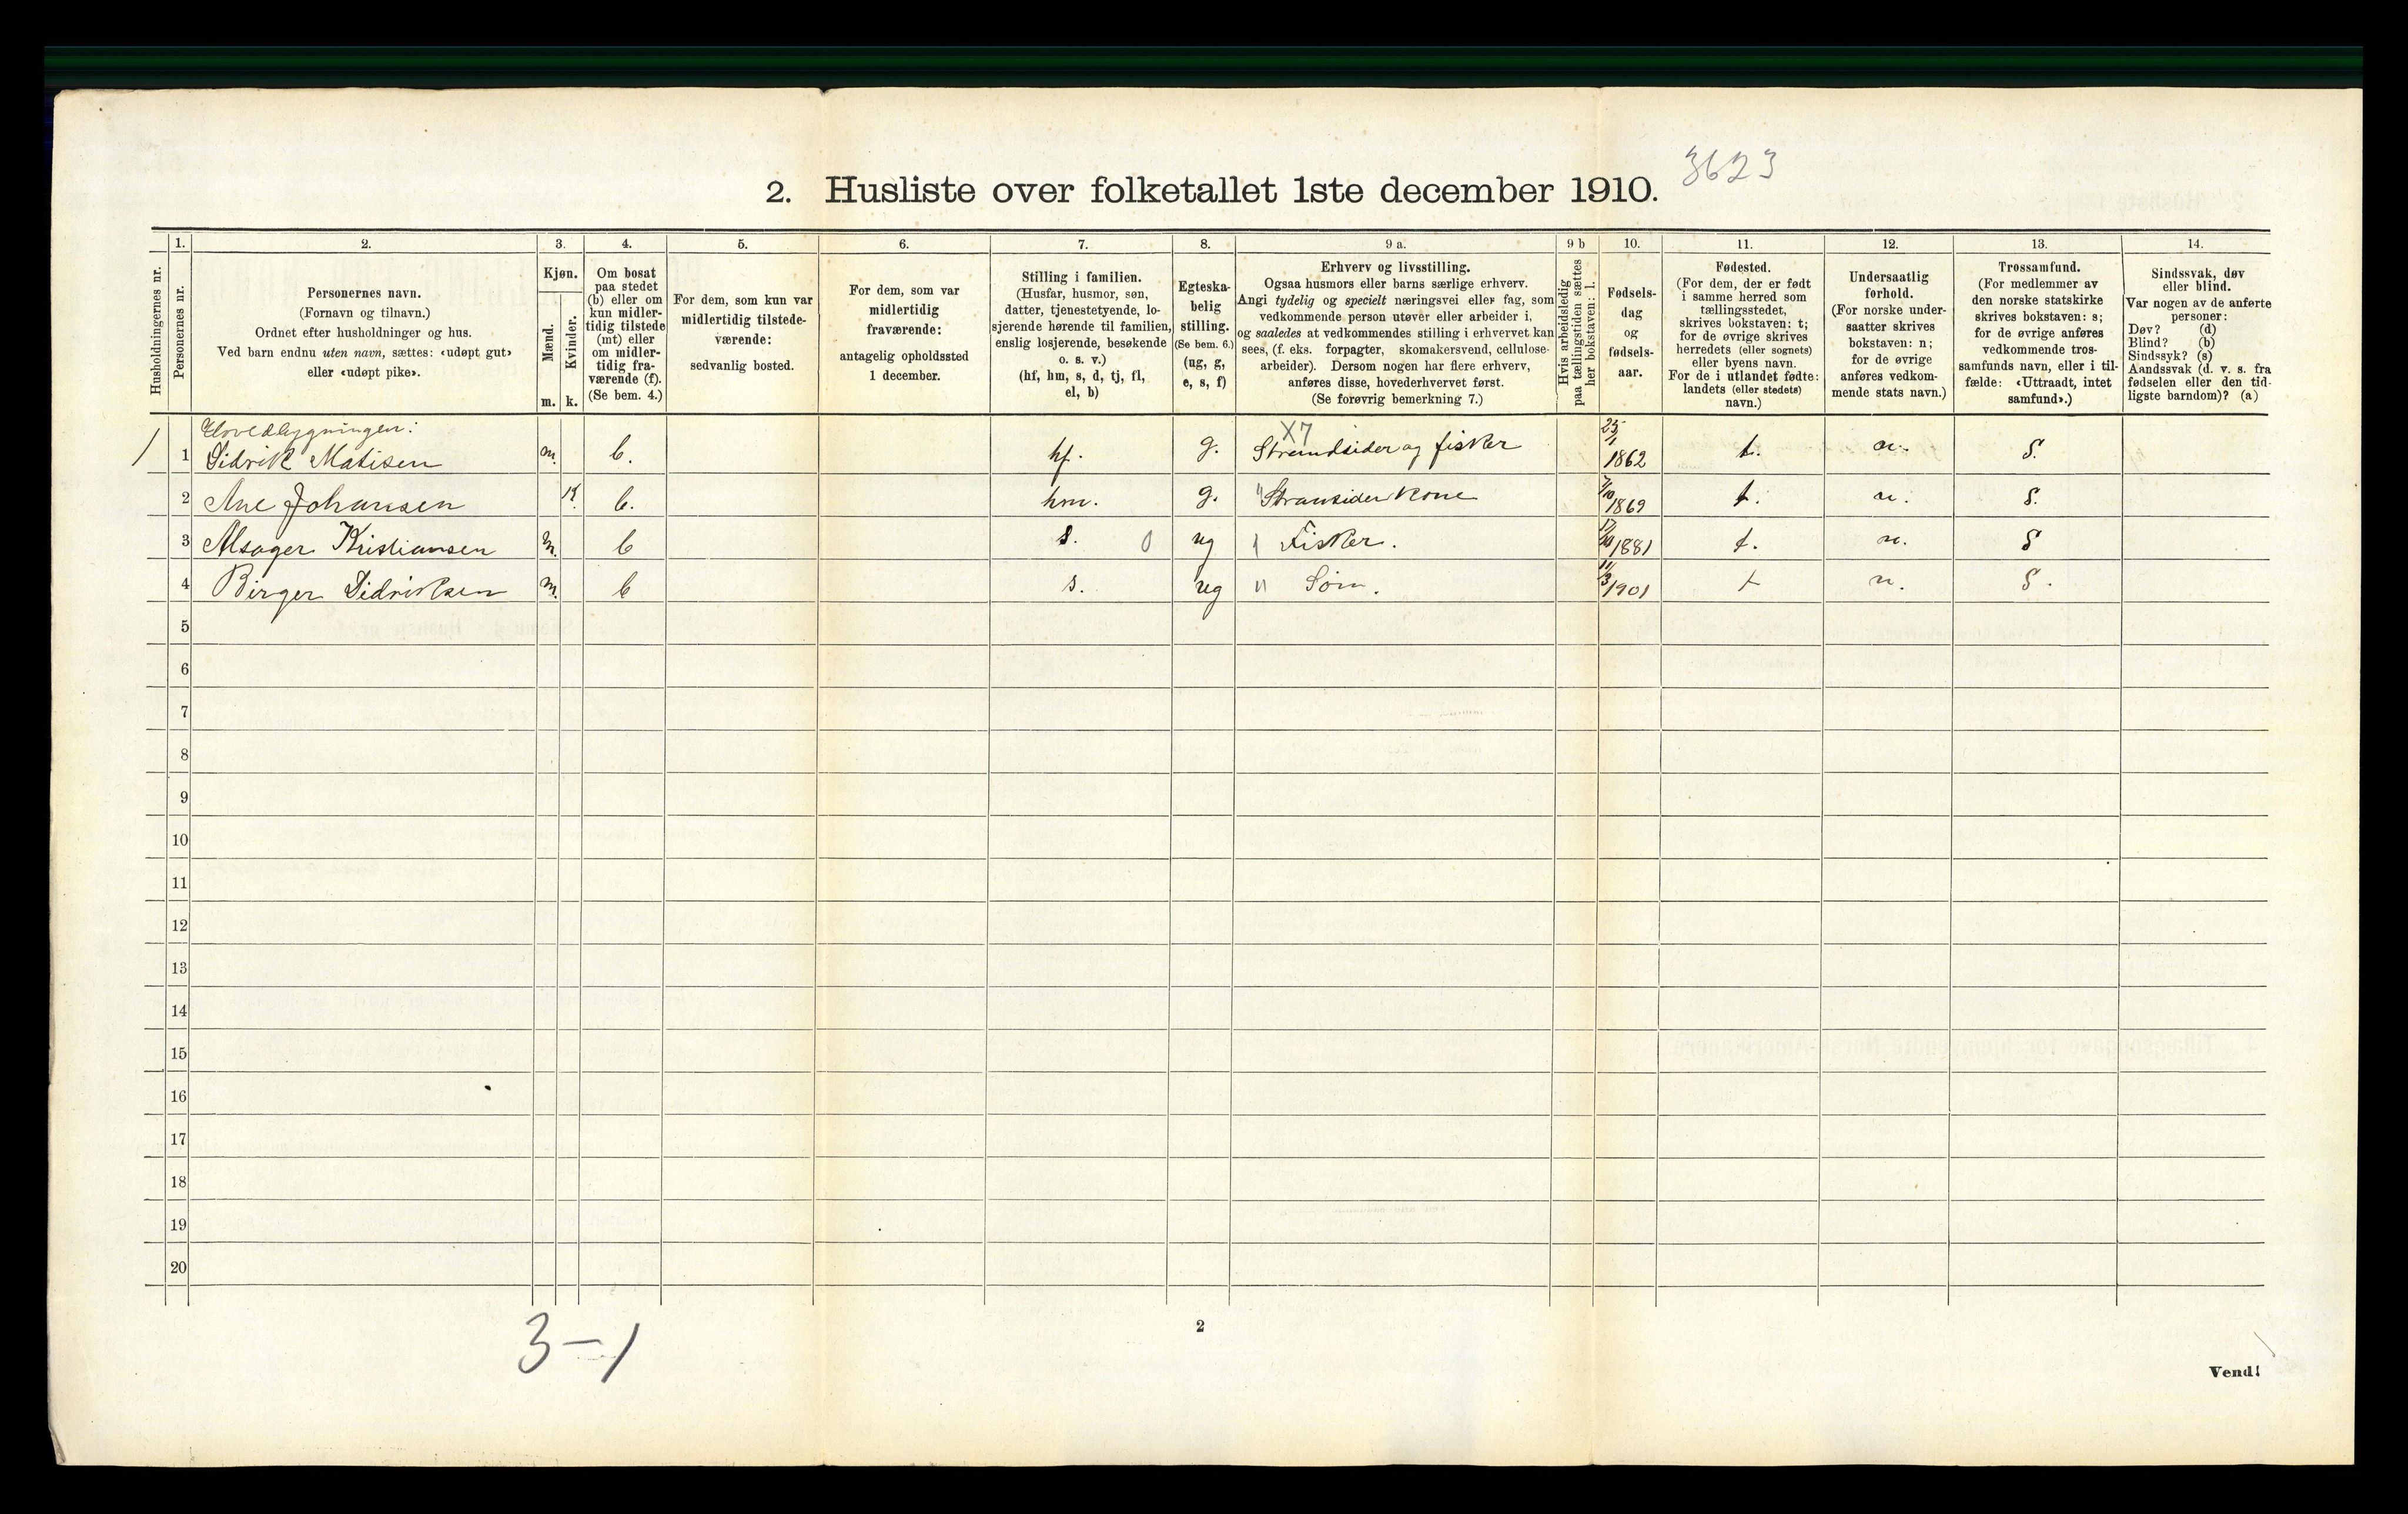 3623
2. Husliste over folketallet 1ste december 1910.
Husholdningernes nr.
1.
Personernes nr.
2.
Personernes navn.
(Fornavn og tilnavn.)
Ordnet efter husholdninger og hus.
Ved barn endnu uten navn, sættes: «udøpt gut»
eller «udøpt pike».
3.
Kjøn.
Mænd.
Kvinder.
m. k.
4.
Om bosat
paa stedet
(b) eller om
kun midler-
tidig tilstede
(mt) eller
om midler-
tidig fra-
værende (f).
(Se bem. 4.)
5.
For dem, som kun var
midlertidig tilstede-
værende:
sedvanlig bosted.
6.
For dem, som var
midlertidig
fraværende:
antagelig opholdssted
1 december.
7.
Stilling i familien.
(Husfar, husmor, søn,
datter, tjenestetyende, lo-
sjerende hørende til familien,
enslig losjerende, besøkende
o. s. v.)
(hf, hm, s, d, tj, fl,
el, b)
8.
Egteska-
belig
stilling.
(Se bem. 6.)
(ug, g,
e, s, f)
9 a.
Erhverv og livsstilling.
Ogsaa husmors eller barns særlige erhverv.
Angi tydelig og specielt næringsvei eller fag, som
vedkommende person utøver eller arbeider i,
og saaledes at vedkommendes stilling i erhvervet kan
sees, (f. eks. forpagter, skomakersvend, cellulose-
arbeider). Dersom nogen har flere erhverv,
anføres disse, hovederhvervet først.
(Se forøvrig bemerkning 7.)
9 b
Hvis arbeidsledig
paa tællingstiden sættes
her bokstaven: l.
10.
Fødsels-
dag
og
fødsels-
aar.
11.
Fødested.
(For dem, der er født
i samme herred som
tællingsstedet,
skrives bokstaven: t;
for de øvrige skrives
herredets (eller sognets)
eller byens navn.
For de i utlandet fødte:
landets (eller stedets)
navn.)
12.
Undersaatlig
forhold.
(For norske under-
saatter skrives
bokstaven: n;
for de øvrige
anføres vedkom-
mende stats navn.)
13.
Trossamfund.
(For medlemmer av
den norske statskirke
skrives bokstaven: s;
for de øvrige anføres
vedkommende tros-
samfunds navn, eller i til-
fælde: «Uttraadt, intet
samfund».)
14.
Sindssvak, døv
eller blind.
Var nogen av de anførte
personer:
Døv? (d)
Blind? (b)
Sindssyk? (s)
Aandssvak (d. v. s. fra
fødselen eller den tid-
ligste barndom)? (a)
Hovedbygningen: X7
1 1 Didrik Matisen m. b. hf. g. Strandsider og fisker 25/1 1862 t. n. S.
2 Ane Johansen K. b. hm. g. " Stransider kone 7/10 1869 t. n. S.
3 Alsager Kristiansen m. b s. 0 ug Fisker. 17/10 1881 t. n. S
4 Birger Didriksen m. b s. ug " Søn. 11/3 1901 t n. S.
5
6
7
8
9
10
11
12
13
14
15
16
17
18
19
20
3-1
2
Vend!